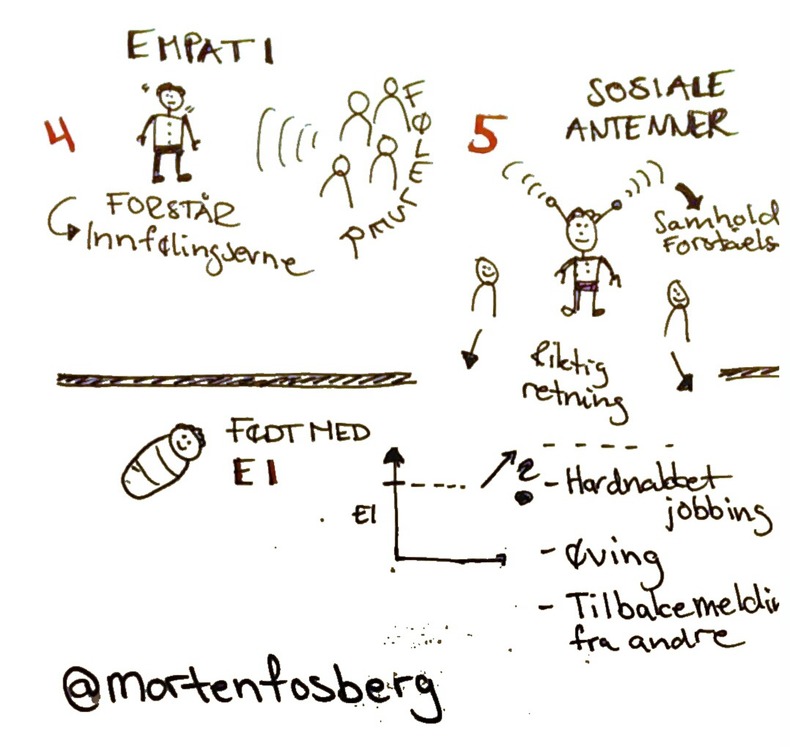 EMPATI
4
FORSTÅR
Innfølingsevne
FØLELR
PRUST
5
SOSIALE
ANTENNER
Samhold
Forståels
Riktig
retning
FØDT MED
EI
EI
?
- Hardnakket
jobbing
- Øving
- Tilbakemeldin
fra andre
@mortenfosberg